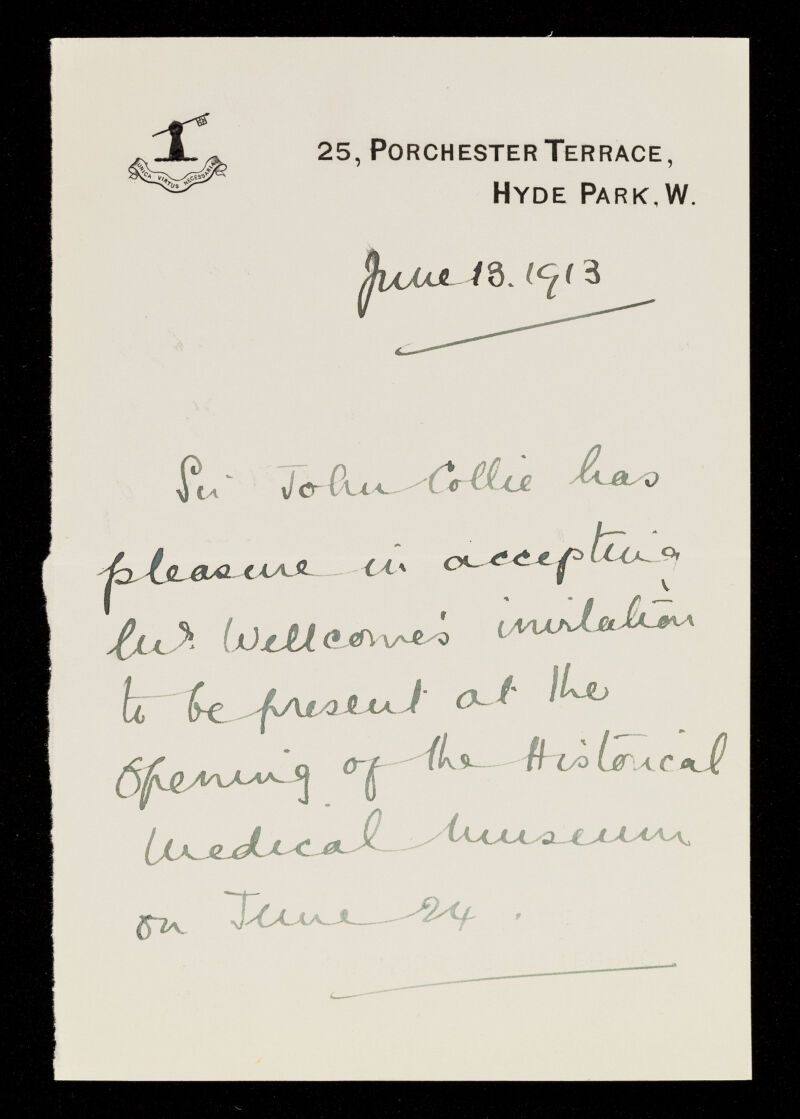 UNICA VIRTUS NECESSARIA
25, PORCHESTER TERRACE,
HYDE PARK, W.
June 13. 1913
Sir John Collie has
pleasure in accepting
Mr. Wellcome's invitation
to be present at the
Opening of the Historical
Medical Museum
on June 24.